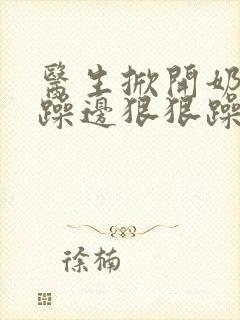 醫生掀開奶
躁邊狠狠躁
徐楠